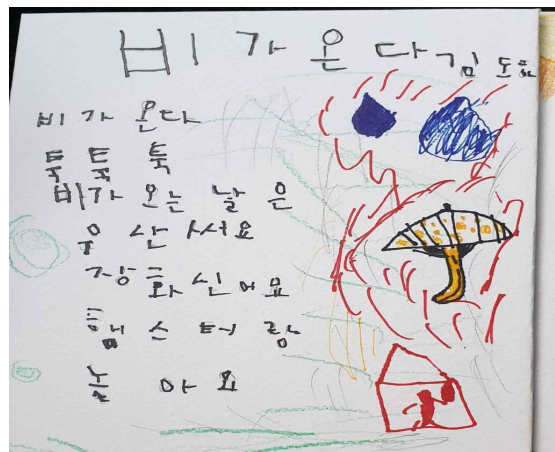 비가 온다 김도
비가 온다
툭 툭 툭
비가 오는 날은
우산 써요
장화 신어요
햄스터랑
놀아요